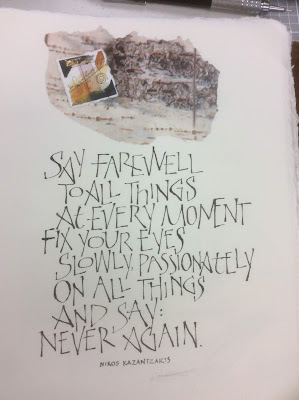 SAY FAREWELL
TO ALL THINGS
AT EVERY MOMENT
FIX YOUR EYES
SLOWLY, PASSIONATELY
ON ALL THINGS
AND SAY:
NEVER AGAIN.
NIKOS KAZANTZAKIS